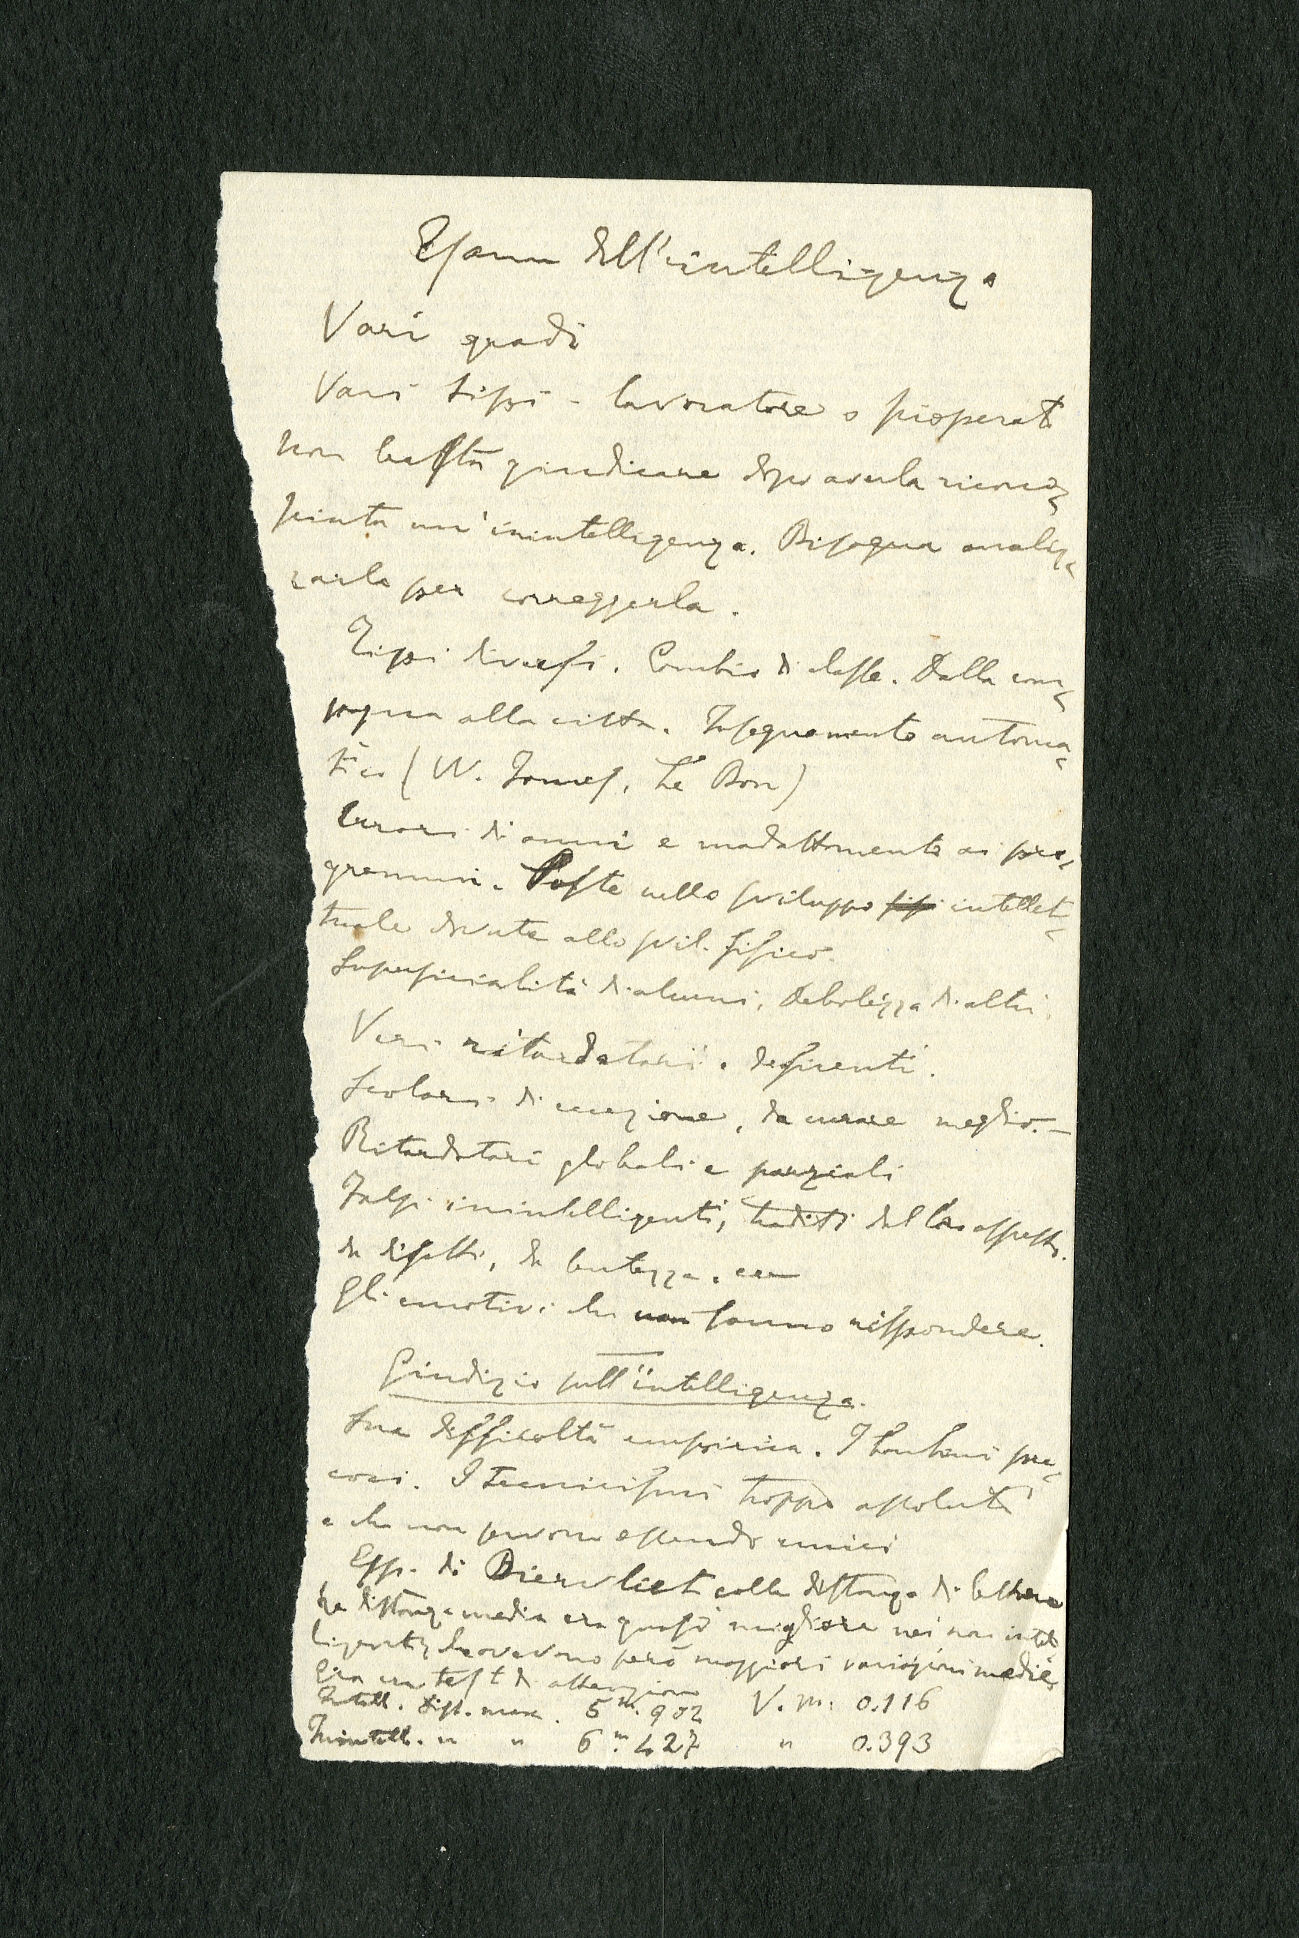 Esame dell'intelligenza
Vari gradi
Vari tipi - lavoratore o
non basta giudicare dopo averla ricono-
sciuta un'inintelligenza. Bisogna analiz-
zarla per correggerla.
Tipi diversi. Cambio di classe. Dalla cam-
pagna alla città. Insegnamento automa-
tico (W. James, Le Bon)
Errori di anni e inadattamento ai pro-
grammi. Soste nello sviluppo intellet-
tuale dovute allo svil. fisico.
Superficialità di alcuni, debolezza di altri.
Veri ritardatari e deficenti.
Scolari di eccezione, da curare meglio. -
Ritardatari globali e parziali
Falsi inintelligenti, traditi dall'aspetto,
da difetti, da lentezza, ecc
Gli emotivi che non sanno rispondere.
Giudizio sull'intelligenza.
Sua difficoltà empirica. I bambini pre-
coci. I tecnicismi troppo assoluti
e che non servono essendo unici
Esp. di Biervliet colla distanza di lettura
La distanza media era quasi migliore nei non intel-
ligenti, che avevano però maggiori variazioni medie.
Era un test di attenzione
Intell. dist. mass. 5m.902 V. m. 0.116
Inintell. " " 6m.427 " 0.393